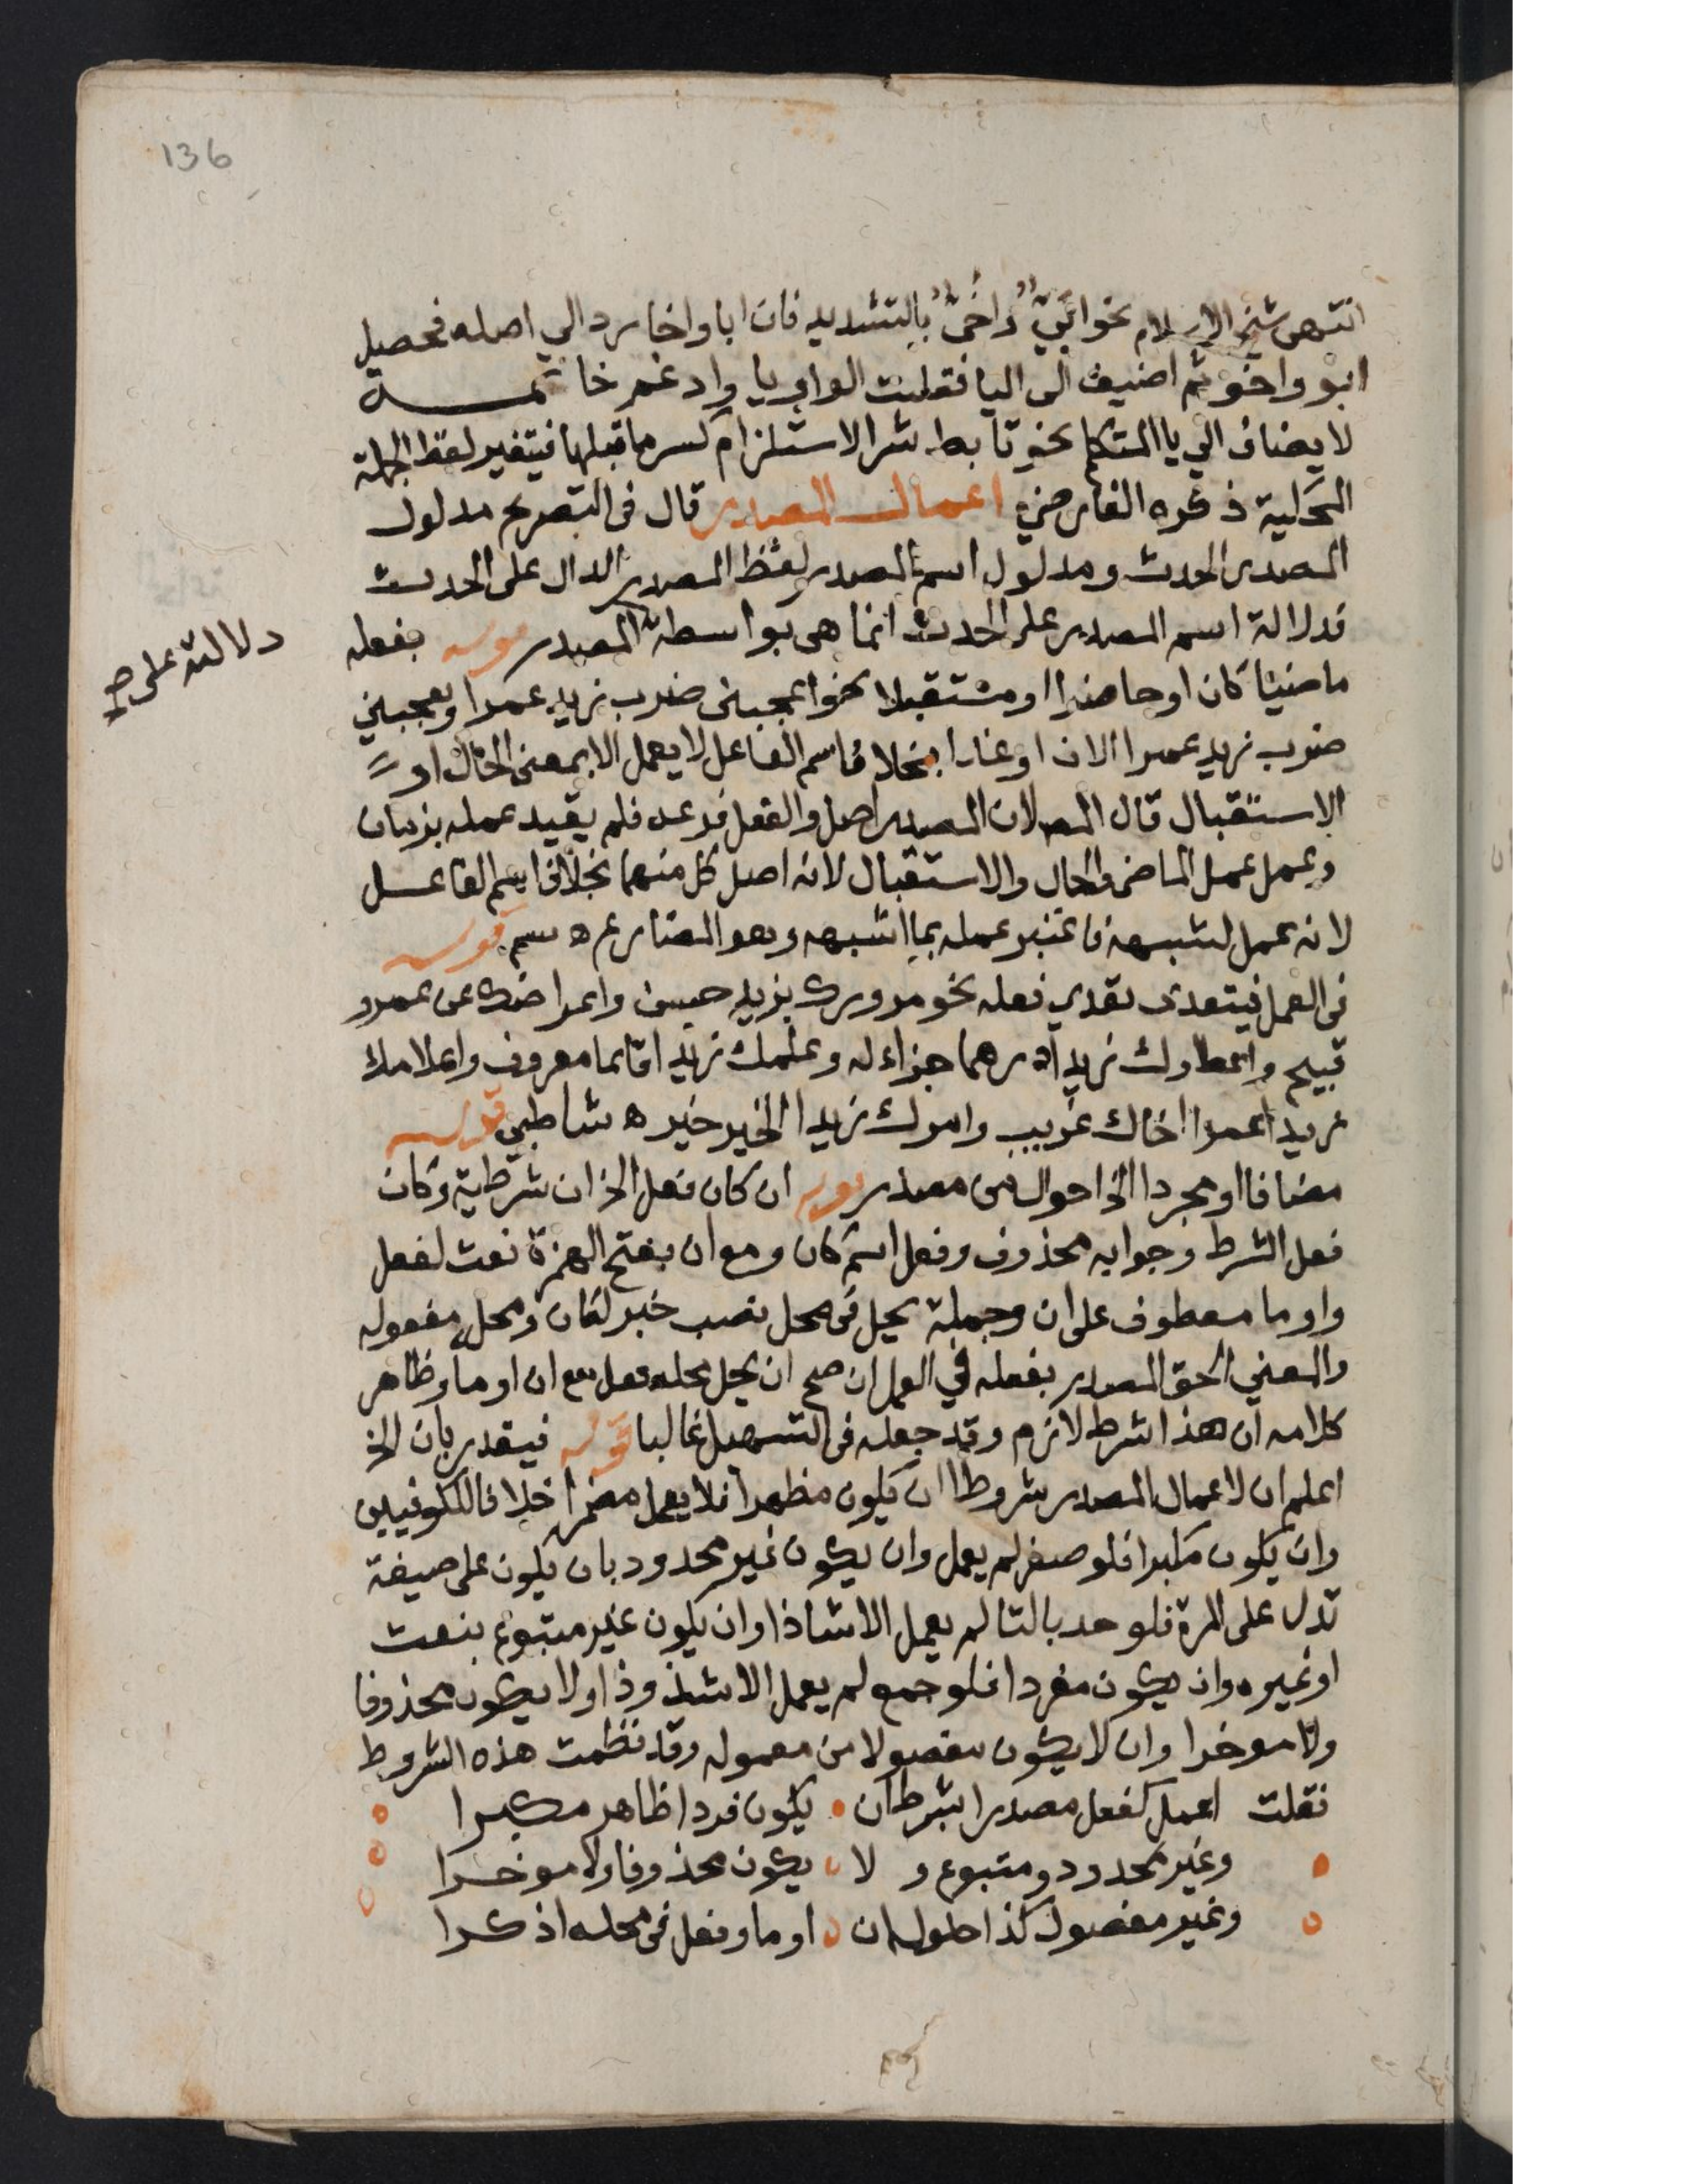 136
انتهى شيخ الاسلام نحو ابيّ واخيّ بالتشديد فان ابا واخا رد الي اصله فحصل
ابو واخو ثم اضيف الى اليا فقلبت الواو يا وادغم خاتمــة
لا يضاف الي يا المتكلم نحو تابط شرا لاستلزام كسر ما قبلها فيتغير لفظ الجملة
المحكية ذكره الفارضي اعمال المصدر قال في التصريح مدلول
المصدر الحدث ومدلول اسم المصدر لفظ المصدر الدال على الحدث
فدلالة اسم المصدر على الحدث انما هي بواسطة المصدر قوله بفعله
دلالته على
ماضيا كان او حاضرا او مستقبلا نحو اعجبني ضرب زيد عمرا ويعجبني
ضرب زيد عمرا الان او غدا بخلاف اسم الفاعل لا يعمل الا بمعنى الحال او
الاستقبال قال المص لان المصدر اصل والفعل فرعه فلم يقيد عمله بزمان
وعمل عمل الماضي والحال والاستقبال لانه اصل كل منهما بخلاف اسم الفاعل
لانه عمل لشبهه فاعتبر عمله بما اشبهه وهو المضارع ه سم قوله
في العمل فيتعدى تعدي فعله نحو مرورك بزيد حسن واعراضك عن عمرو
قبيح واعطاوك زيدا درهما جزاء له وعلمك زيدا قائما معروف واعلامك
زيدا عمرا اخاك غريب وامرك زيدا الخير خير ه شاطبي قوله
مضافا او مجردا الخ احوال من مصدر قوله ان كان فعل الخ ان شرطية وكان
فعل الشرط وجوابه محذوف وفعل اسم كان ومع ان بفتح الهمزة نعت لفعل
واو ما معطوف على ان وجملة يحل في محل نصب خبر لكان ومحل مفعوله
والمعني الحق المصدر بفعله في العمل ان صح ان يحل محله فعل مع ان او ما وظاهر
كلامه ان هذا شرط لازم وقد جعله في التسهيل غالبا قوله فيقدر بان الخ
اعلم ان لاعمال المصدر شروطا ان يكون مظهرا فلا يعمل مضمرا خلافا للكوفيين
وان يكون مكبرا فلو صغر لم يعمل وان يكون غير محدود بان يكون على صيغة
تدل على المرة فلو حد بالتا لم يعمل الا شاذا وان يكون غير متبوع بنعت
او غيره وان يكون مفردا فلو جمع لم يعمل الا شذوذا ولا يكون محذوفا
ولا موخرا وان لا يكون مفصولا من معموله وقد نظمت هذه الشروط
فقلت اعمل كفعل مصدرا بشرط ان يكون فردا ظاهر مكبرا
وغير محدود ومتبوع و لا يكون محذوفا ولا موخرا
وغير مفصول كذا حلول ان او ما وفعل في محله اذكرا